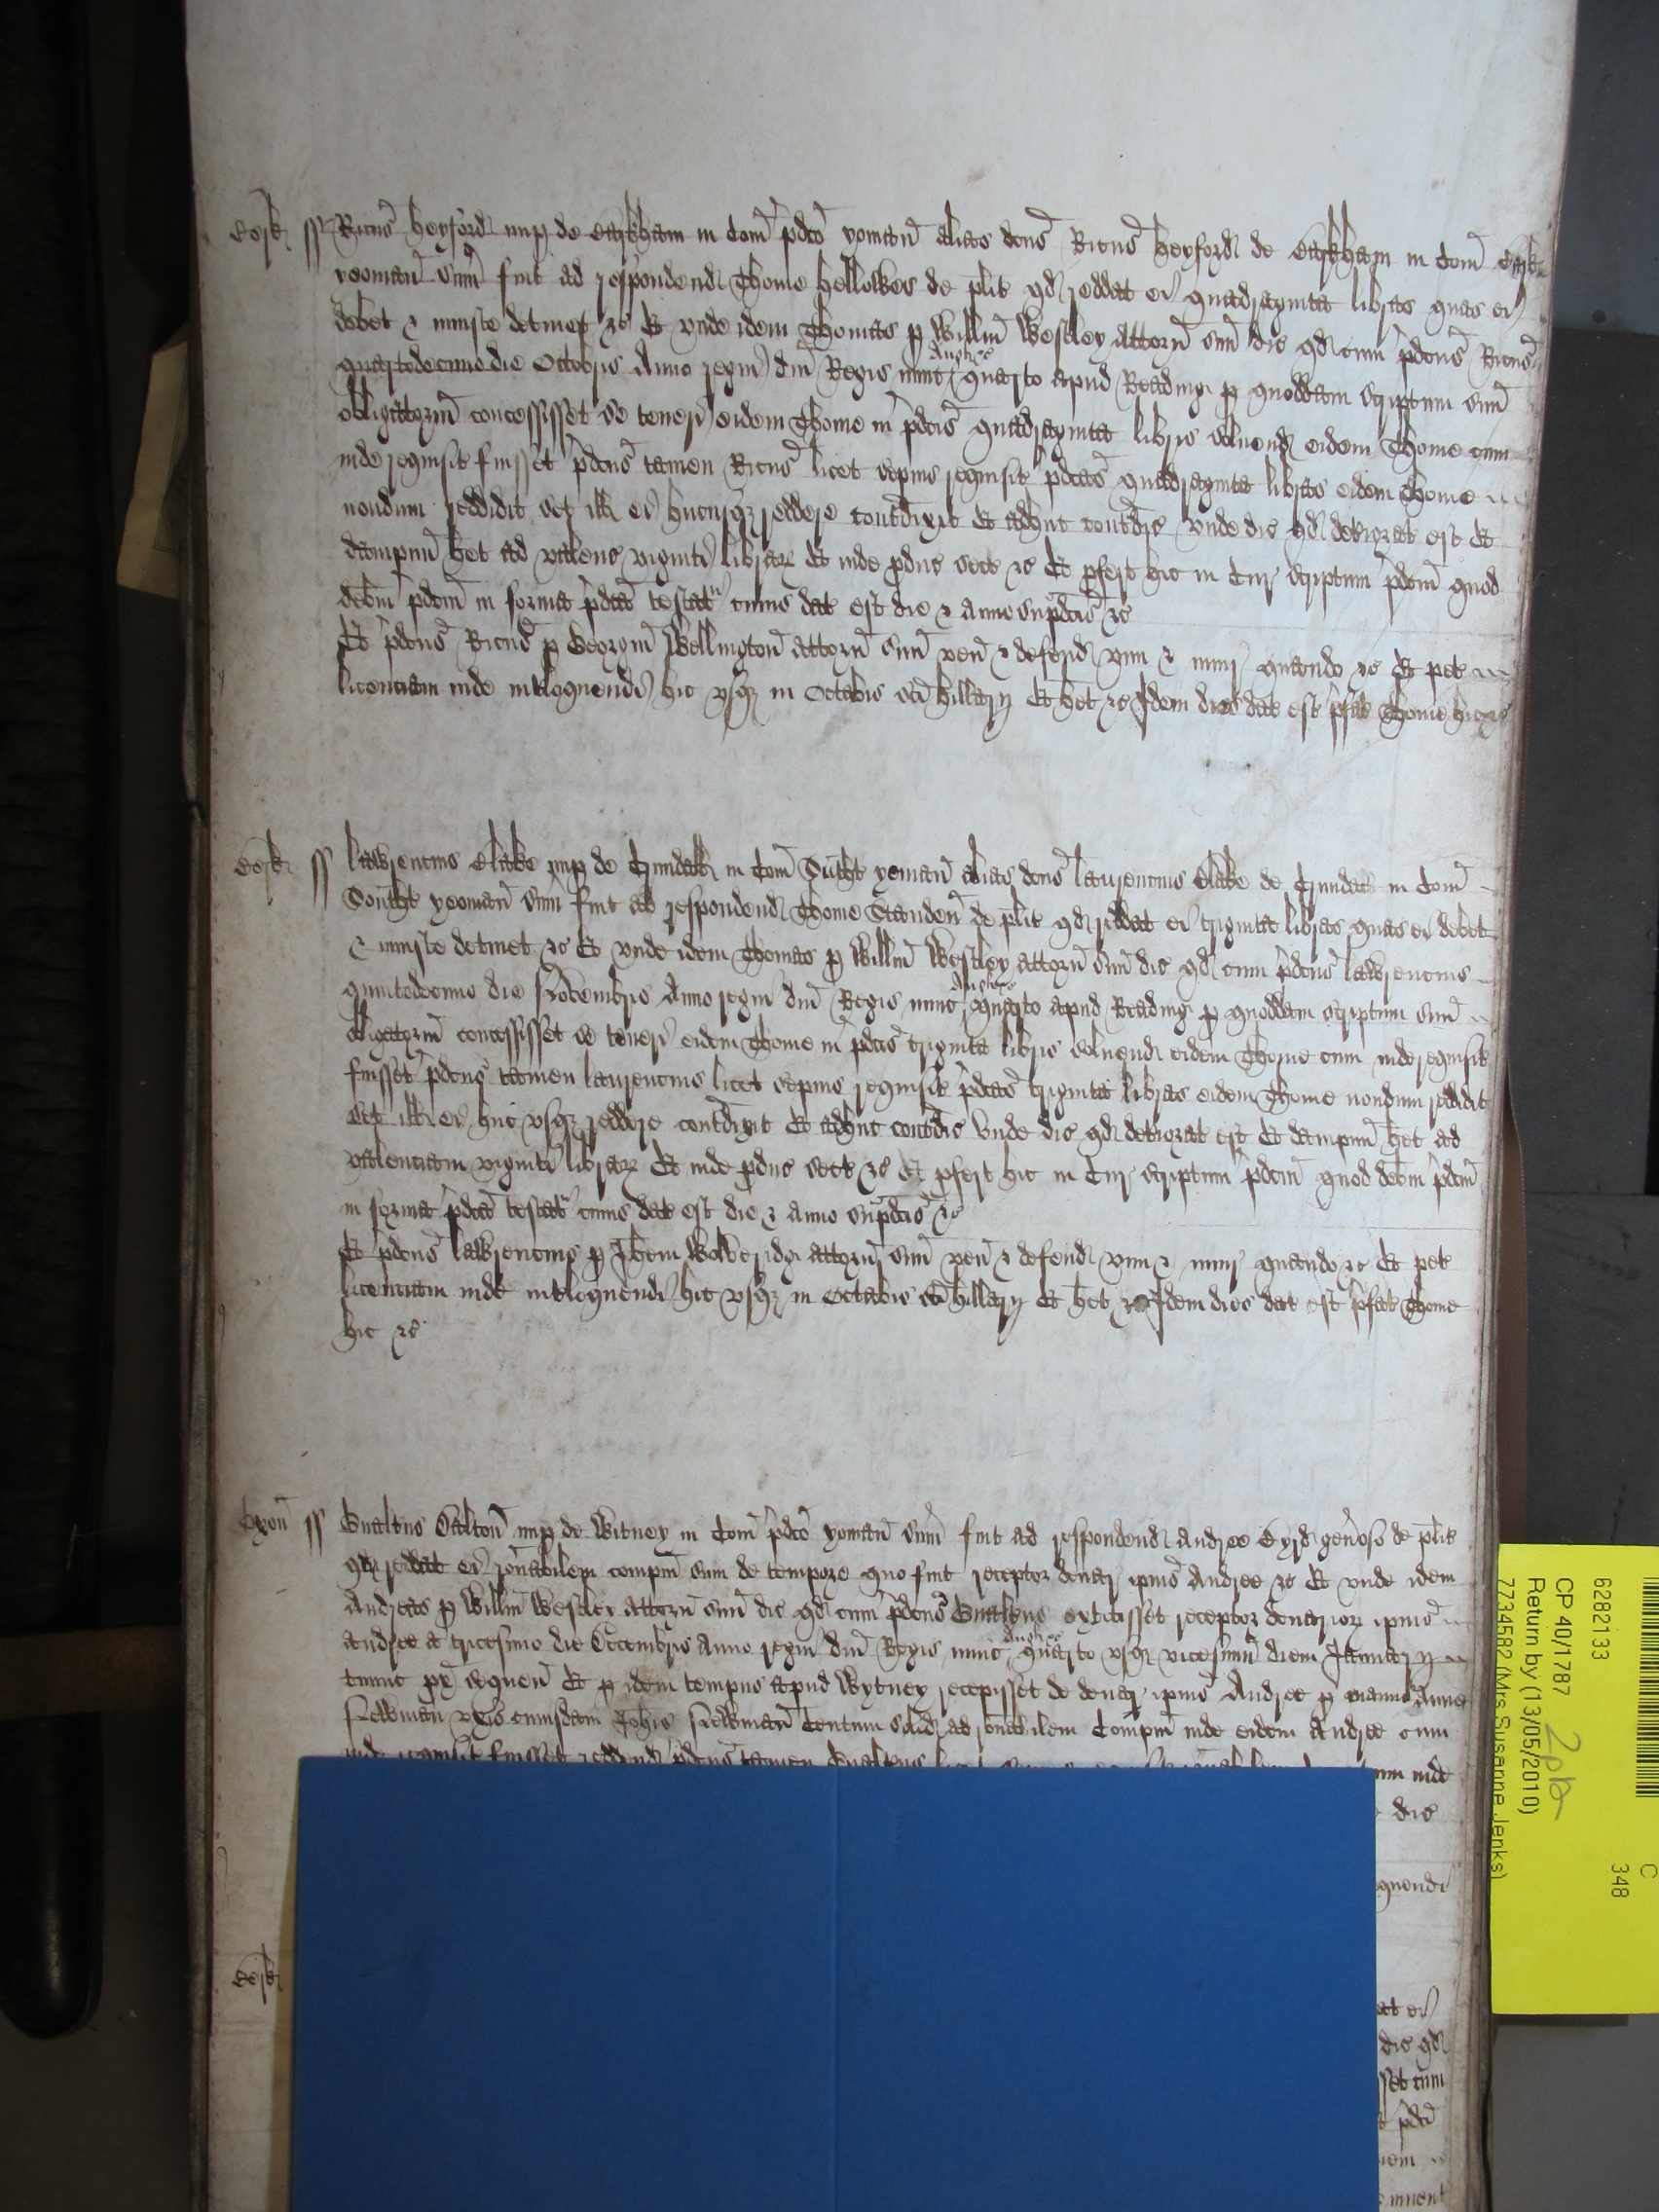 Berk ss Ricus Heyford nup de Barkham in Com pdco yoman alias dcus Ricus Heyford de Barkham in Com Berk
yeoman sum fuit ad respondend Thome Hellokes de plito qd reddat ei quadraginta libras quas ei
debet & iniuste detinet &c Et unde idem Thomas p Willm Westley attorn suu dic qd cum pdcus Ricus
quartodecimo die Octobris Anno regni dni Regis nunc Anglie quarto apud Reading p quoddam scriptum suu
obligatoriu concessisset se teneri eidem Thome in pdcis quadraginta libris solvend eidem Thome cum
inde requisit fuisset pdcus tamen Ricus licet sepius requisit pdcas quadraginta libras eidem Thome
nondum reddidit set ill ei hucusq reddere contradixit Et adhuc contradic Unde dic qd deteriorat est Et
dampnu het ad valenc viginti librar Et inde pduc sect &c Et pfert hic in Cur scriptum pdcm quod
debm pdcm in forma pdca testat cuius dat est die & anno supdcis &c
Et pdcus Ricus p Georgiu Wellington attorn suu ven & defend vim & iniur quando &c Et pet
licenciam inde interloquendi hic usq in Octabis sci Hillarij Et het &c Idem dies dat est pfat Thome hic &c
Berk ss Lawrencius Blake nup de Crundall in Com Suth yeoman alias dcus Laurencius Blake de Crundall in Com
South yeoman sum fuit ad respondend Thome Standen de plito qd reddat ei triginta libras quas ei debet
& iniuste detinet &c Et unde idem Thomas p Willm Westley attorn suu dic qd cum pdcus Lawrencius
quintodecimo die Novembris Anno regni dni Regis nunc Anglie quarto apud Reading p quoddam scriptum suu
obligatoriu concessisset se teneri eidem Thome in pdcis triginta libris solvend eidem Thome cum inde requisit
fuisset pdcus tamen Laurencius licet sepius requisit pdcas triginta libras eidem Thome nondum reddidit
set ill ei huc usq reddere contradixit Et adhuc contradic Unde dic qd deteriorat est Et dampnu het ad
valenciam viginti librar Et inde pduc sect &c Et pfert hic in Cur scriptum pdcm quod debm pdcm
in forma pdca testat cuius dat est die & anno supdcis &c
Et pdcus Lawrencius p Johem Wolveridge attorn suu ven & defend vim & iniur quando &c Et pet
licenciam inde interloquendi hic usq in Octabis sci Hillarij Et het &c Idem dies dat est pfat Thome
hic &c
Oxon ss Gualterus Dalton nup de Witney in Com pdco yoman sum fuit ad respondend Andree generoso de plito
qd reddat ei ronabilem compm suu de tempore quo fuit receptor denar ipius Andree &c Et unde idem
Andreas p Willm Westley attorn suu dic qd cum pdcus Gualterus extitisset receptor denarior ipius
Andree a tricesimo die Decembris Anno regni dni Regis nunc Anglie quarto usq vicesimu diem Januarij
tunc px sequen Et p idem tempus apud Wytney recepisset de denar ipius Andree p manu Anne
Newman uxis cuiusdam Johis Newman Centum solid ad ronabilem Compm inde eidem Andree cum
inde requisit fuisset reddend pdcus tamen Gualterus
inde
dic
quendi
Berk
ei
dic qd
cum
pdci
6282133
C
348
CP 40/1787
Return by (13/05/2010)
7734582 (Mrs Susanne Jenks)